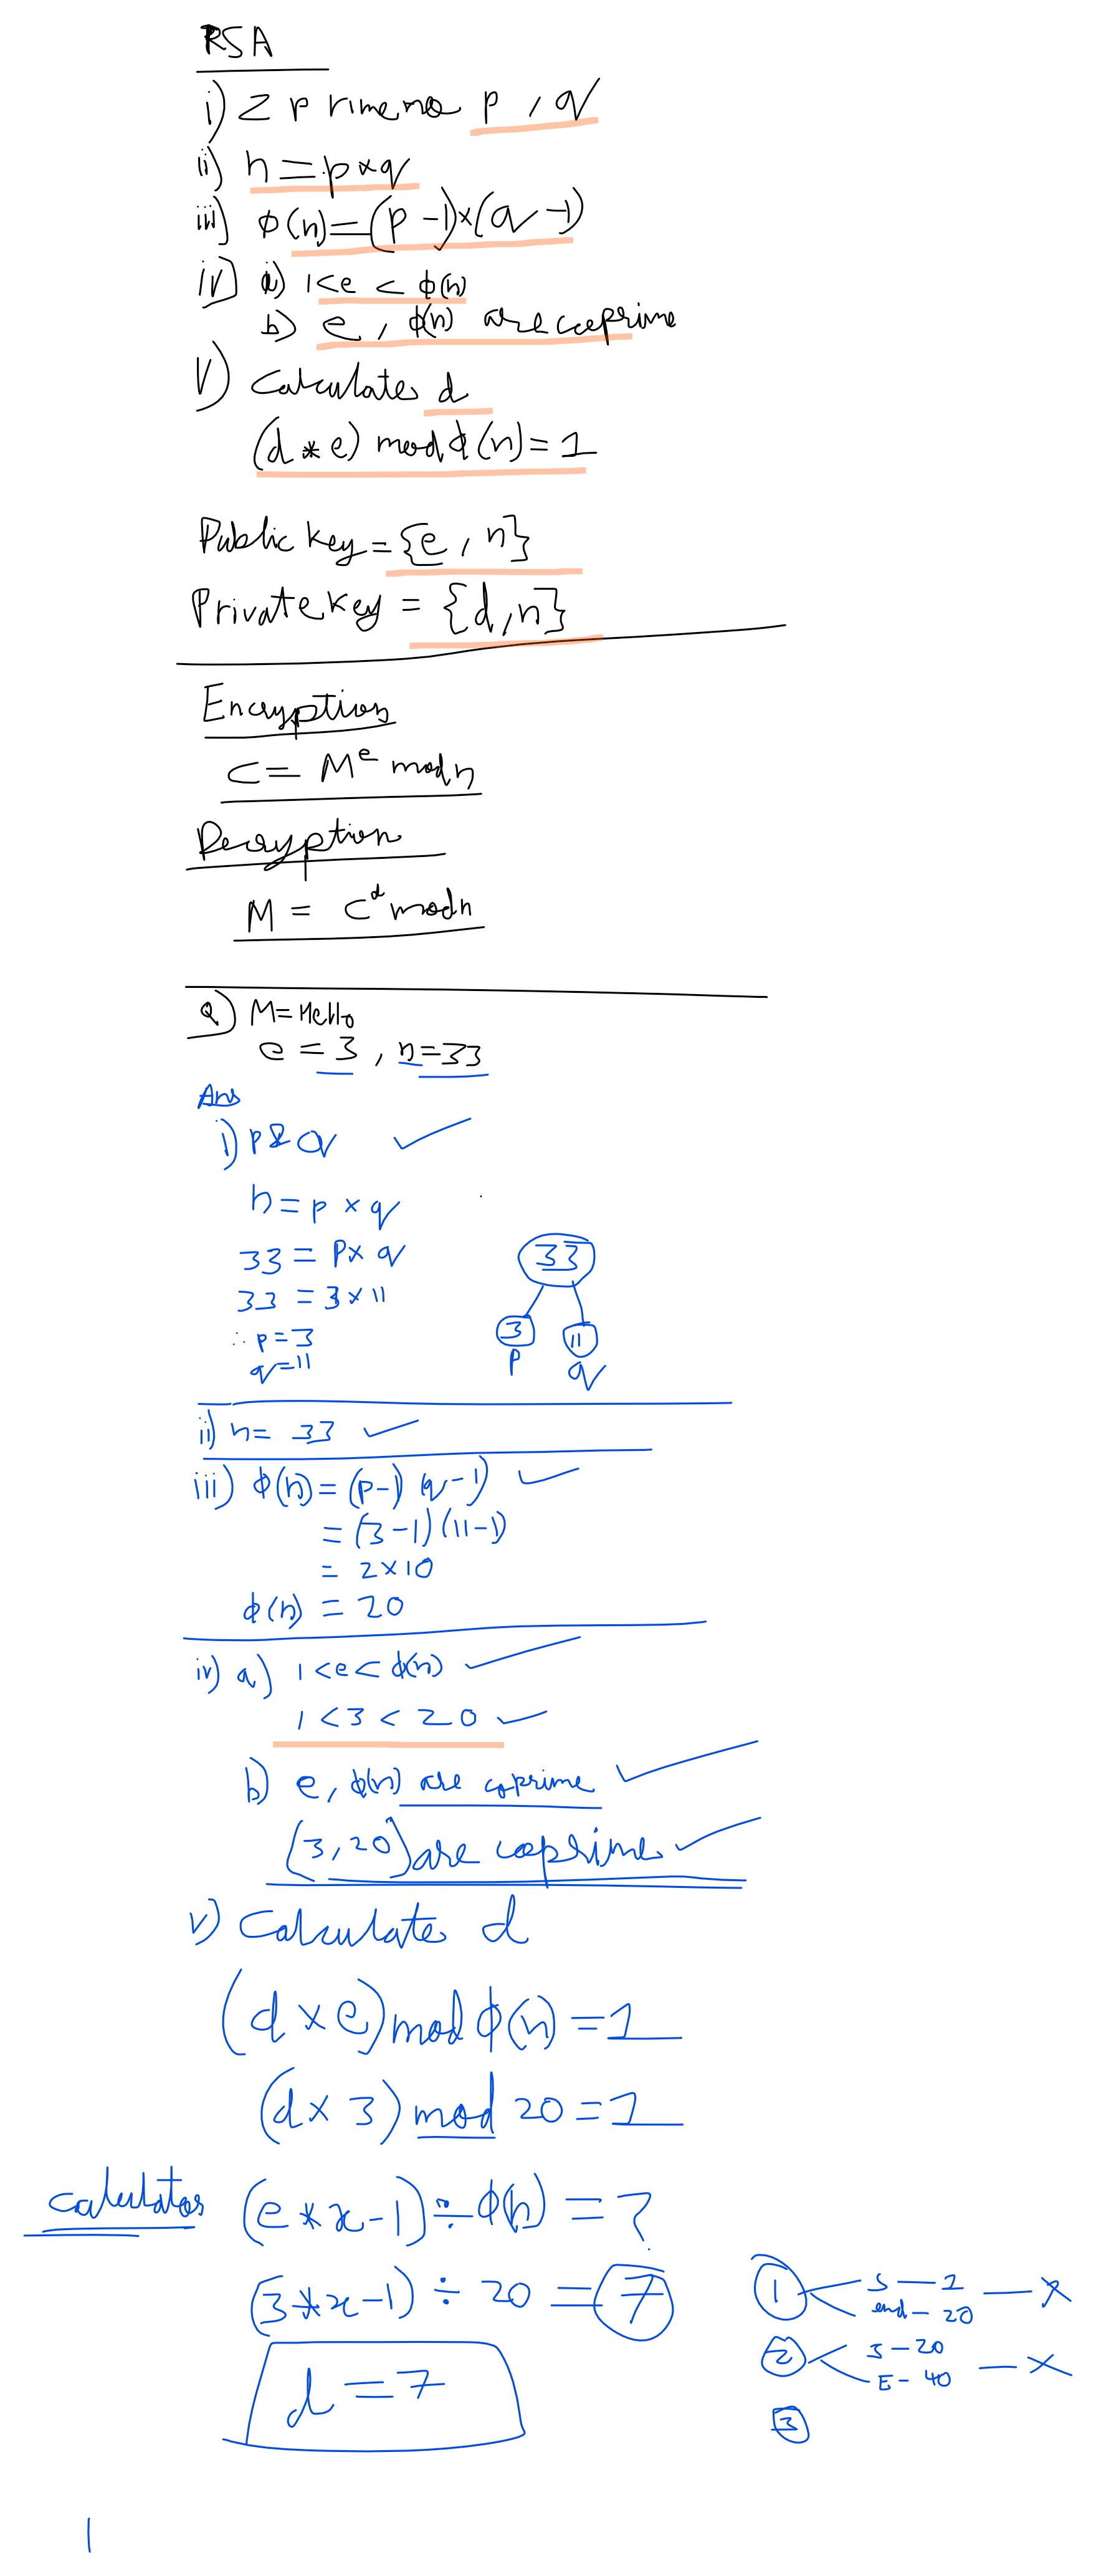 RSA
i) 2 prime no p, q
ii) n = p×q
iii) φ(n) = (p-1)×(q-1)
iv) a) 1<e < φ(n)
b) e, φ(n) are coprime
V) Calculate d
(d * e) mod φ(n) = 1
Public key = {e, n}
Private key = {d, n}
Encryption
C = M^e mod n
Decryption
M = C^d mod n
Q) M = Hello
e = 3, n = 33
Ans
i) p & q
n = p × q
33 = p × q
33 = 3 × 11
∴ p = 3
q = 11
33
3 11
p q
ii) n = 33
iii) φ(n) = (p-1) (q-1)
= (3-1) (11-1)
= 2×10
φ(n) = 20
iv) a) 1 < e < φ(n)
1 < 3 < 20
b) e, φ(n) are coprime
(3, 20) are coprime
v) Calculate d
(d × e) mod φ(n) = 1
(d × 3) mod 20 = 1
calculator (e * x - 1) ÷ φ(n) = ?
(3 * x - 1) ÷ 20 = 7
d = 7
1 S — 1 — X
end - 20
2 S - 20 — X
E - 40
3